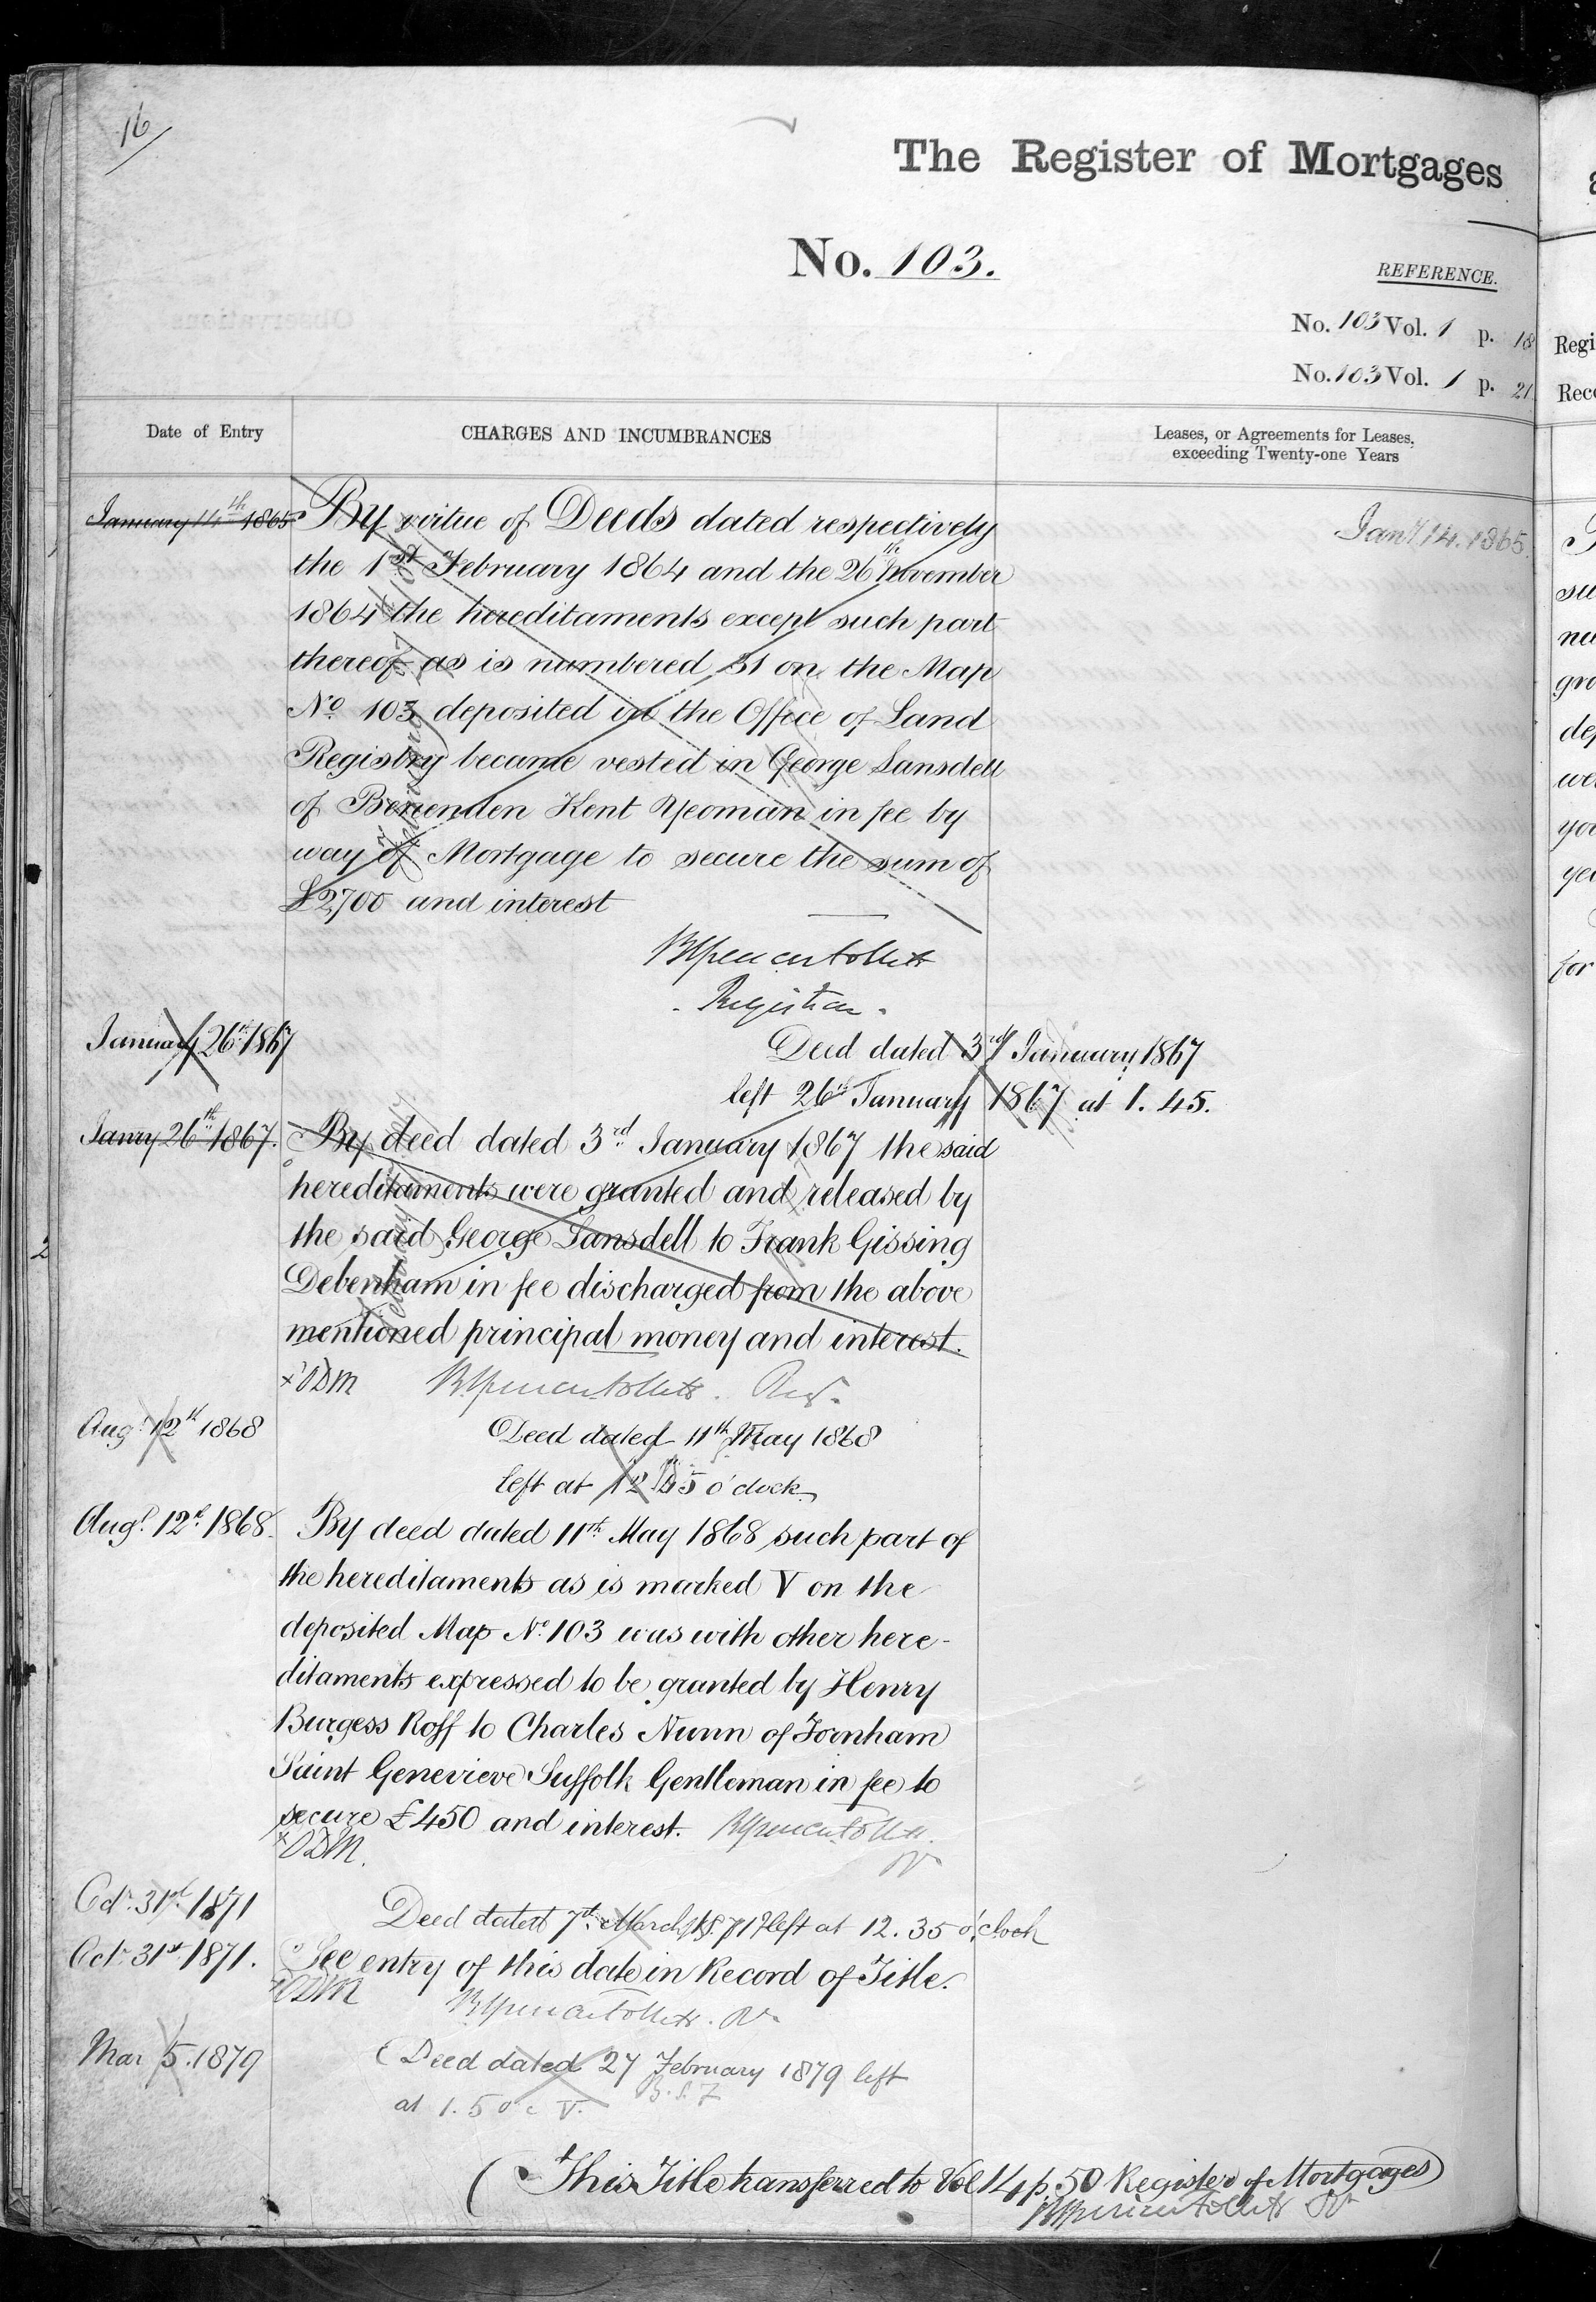 16
The Register of Mortgages
No. 103.
REFERENCE.
No. 103 Vol. 1 p. 18
No. 103 Vol. 1 p. 21
Date of Entry
CHARGES AND INCUMBRANCES
Leases, or Agreements for Leases,
exceeding Twenty-one Years
January 14th 1865
By virtue of Deeds dated respectively
Jany 14. 1865.
the 1st February 1864 and the 26th November
1864 the hereditaments except such part
thereof as is numbered 31 on the Map
No. 103 deposited in the Office of Land
Registry became vested in George Lansdell
of Kent Yeoman in fee by
way of Mortgage to secure the sum of
£2,700 and interest
Registrar.
January 26th 1867
Deed dated 3rd January 1867
left 26th January 1867 at 1. 45.
Janry 26th 1867.
By deed dated 3rd January 1867 the said
hereditaments were granted and released by
the said George Lansdell to Frank Gissing
Debenham in fee discharged from the above
mentioned principal money and interest.
x ODM
Augt 12th 1868
Deed dated 11th May 1868
left at 12 45 o'clock
Augt. 12th 1868.
By deed dated 11th May 1868 such part of
the hereditaments as is marked V on the
deposited Map No. 103 was with other here-
ditaments expressed to be granted by Henry
Burgess Roff to Charles Nunn of Fornham
Saint Genevieve Suffolk Gentleman in fee to
secure £450 and interest.
x ODM.
Octr. 31st 1871
Deed dated 7th March 1871 left at 12. 35 o'clock
Octr 31st 1871.
See entry of this date in Record of Title.
x ODM
Mar 5. 1879
Deed dated 27 February 1879 left
at 1.50
(This Title transferred to Vol 14 p. 50 Register of Mortgages)